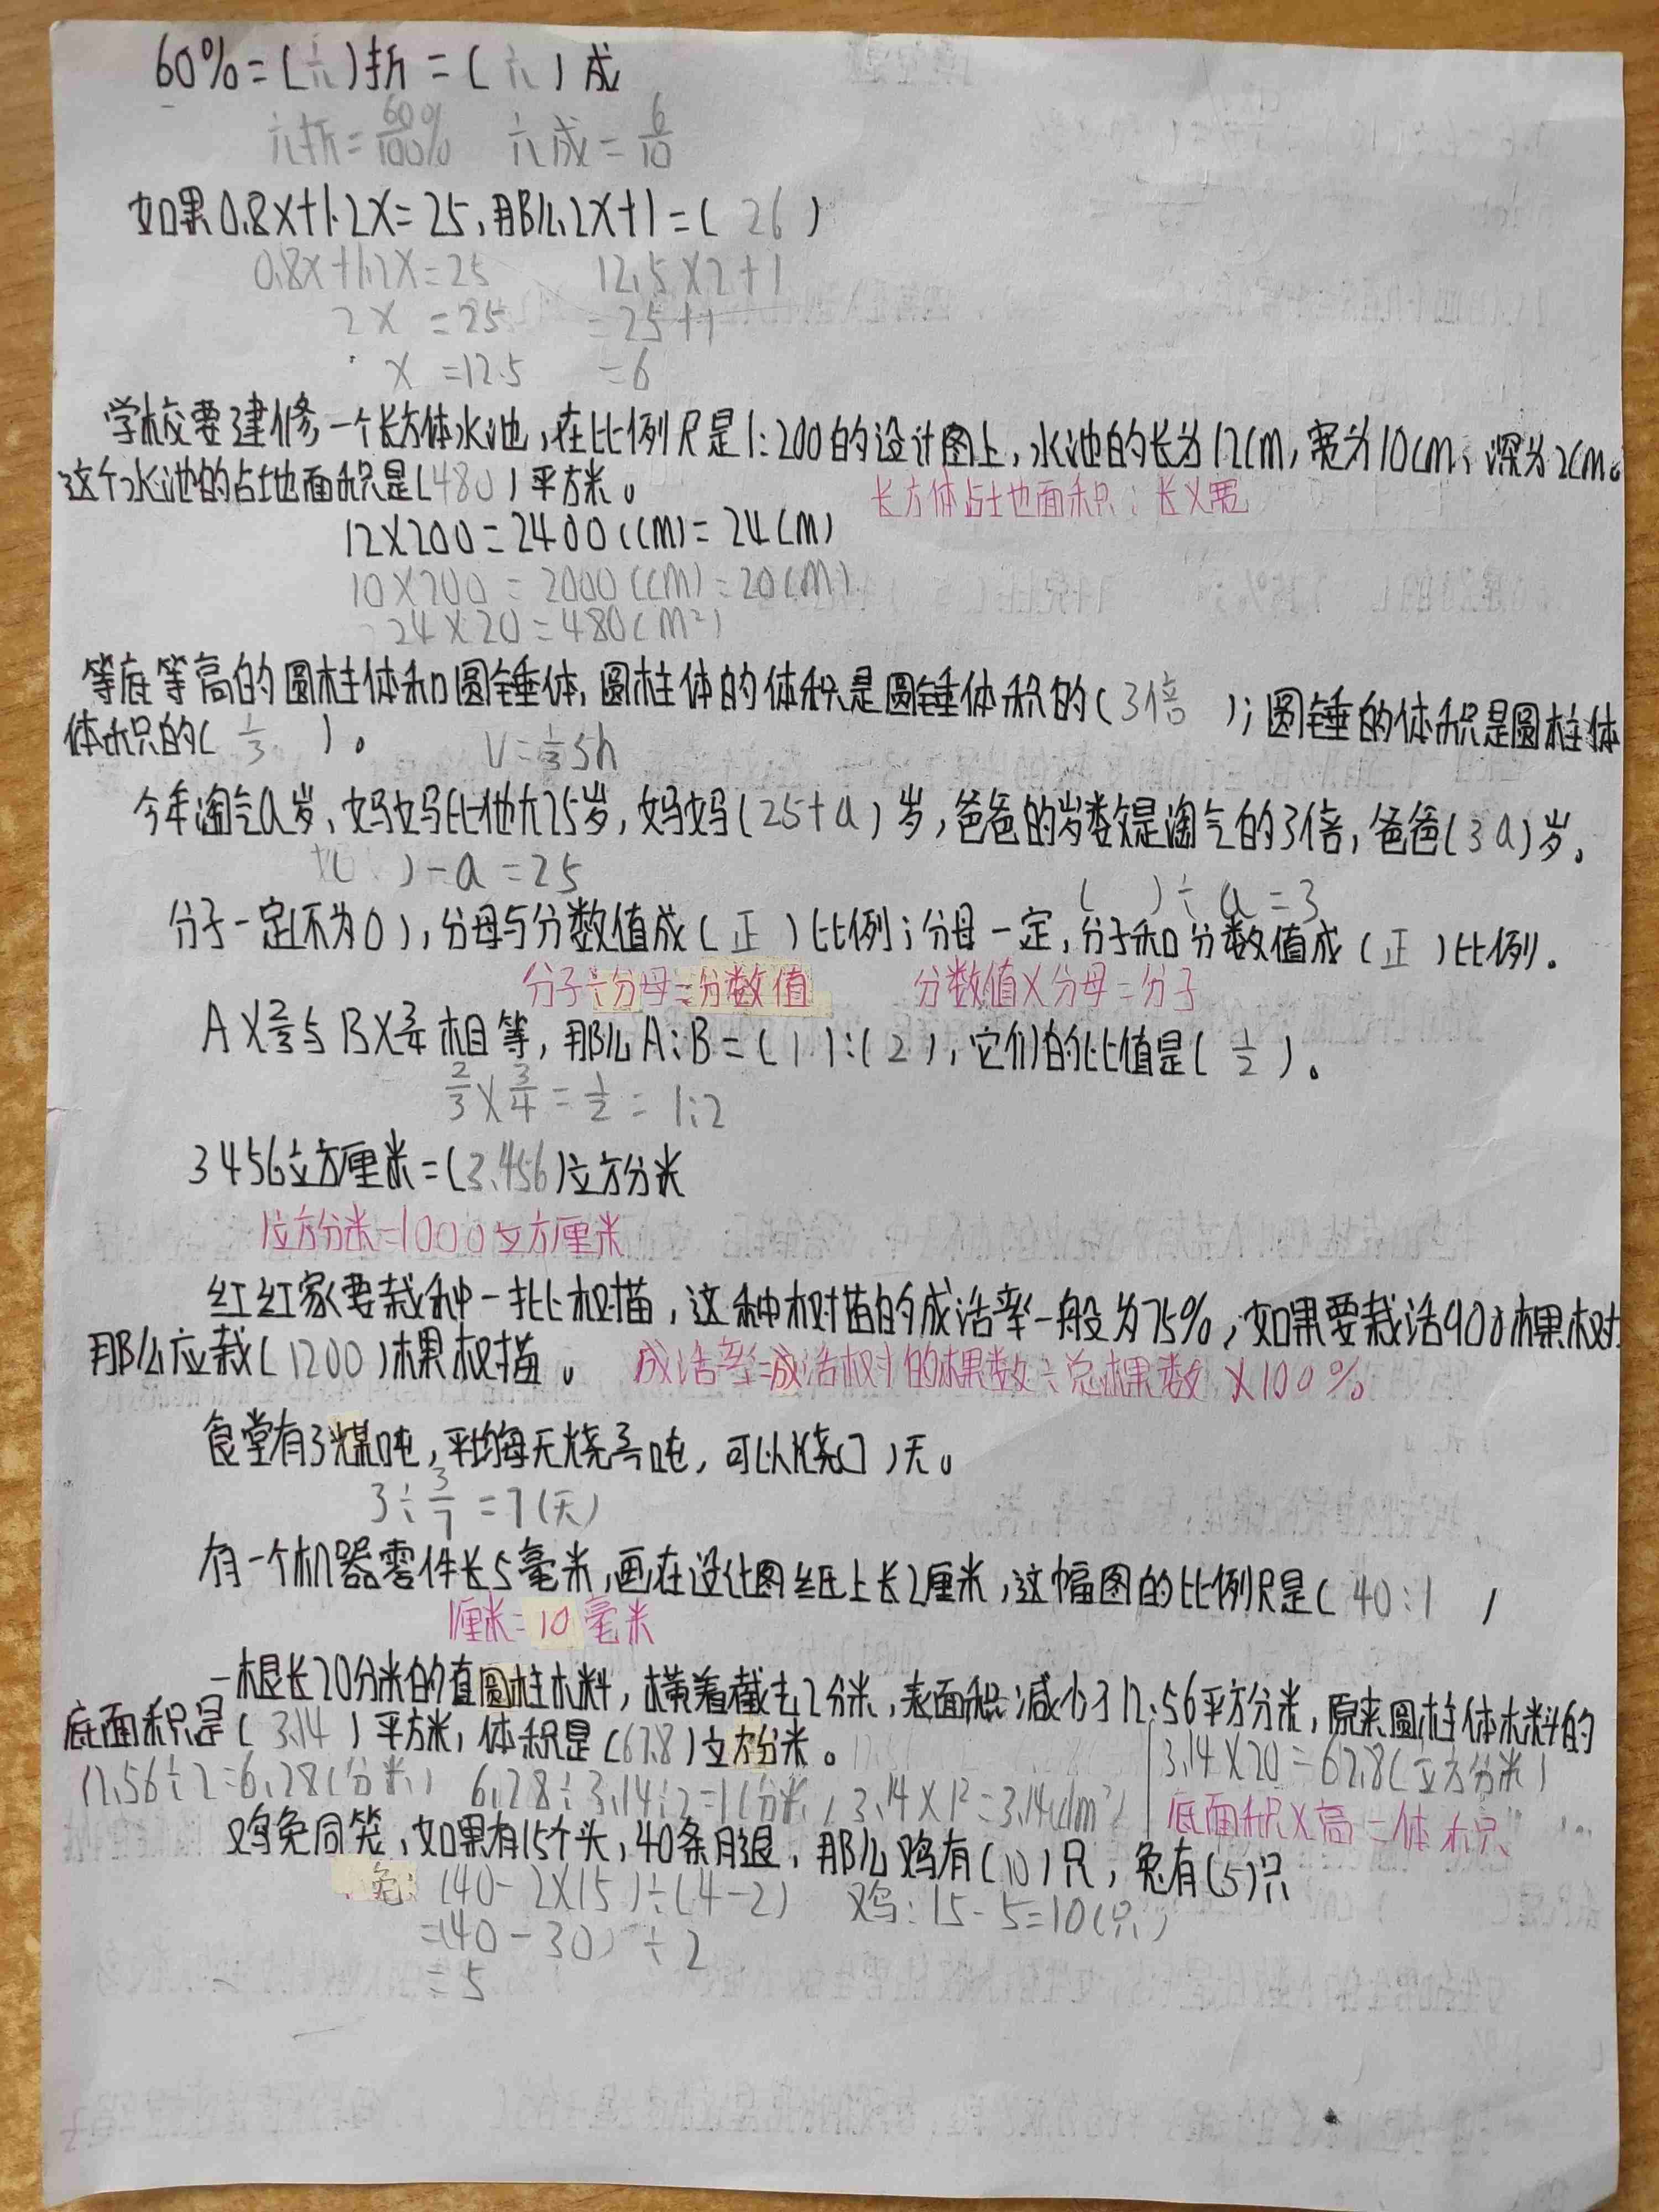 60%=(六)折=(六)成
六折=60%/100% 六成=6/10
如果0.8x+1.2x=25,那么2x+1=( 26 )
0.8x+1.2x=25 12.5×2+1
2x =25 =25+1
x =12.5 =6
学校要建修一个长方体水池,在比例尺是1:200的设计图上,水池的长为12cm,宽为10cm、深为2cm。
这个水池的占地面积是(480)平方米。 长方体占地面积:长×宽
12×200=2400(cm)=24(m)
10×200=2000(cm)=20(m)
24×20=480(m²)
等底等高的圆柱体和圆锤体,圆柱体的体积是圆锤体积的(3倍 );圆锤的体积是圆柱体
体积的( 1/3 )。 V=1/3Sh
今年淘气a岁、妈妈比他大25岁,妈妈(25+a)岁,爸爸的岁数是淘气的3倍,爸爸(3a)岁。
( )-a=25
( )÷a=3
分子一定(不为0),分母与分数值成(正)比例;分母一定,分子和分数值成(正)比例。
分子÷分母=分数值 分数值×分母=分子
A×2/3与B×3/4相等,那么A:B=(1):(2),它们的比值是( 1/2 )。
2/3×3/4=1/2=1:2
3456立方厘米=(3.456)立方分米
1立方分米=1000立方厘米
红红家要栽种一批树苗,这种树苗的成活率一般为75%,如果要栽活900棵树
那么应栽(1200)棵树苗。 成活率=成活树的棵数÷总棵数×100%
食堂有3煤吨,平均每天烧3/7吨,可以烧(7)天。
3÷3/7=7(天)
有一个机器零件长5毫米,画在设计图纸上长2厘米,这幅图的比例尺是( 40:1 )
1厘米=10毫米
一根长20分米的直圆柱木料,横着截去2分米,表面积减少了12.56平方分米,原来圆柱体木料的
底面积是( 3.14 )平方米,体积是(62.8)立方分米。
3.14×20=62.8(立方分米)
12.56÷2=6.28(分米) 6.28÷3.14÷2=1(分米) 3.14×1²=3.14(dm²)
底面积×高=体积
鸡兔同笼,如果有15个头,40条腿,那么鸡有(10)只,兔有(5)只
兔:(40-2×15)÷(4-2) 鸡:15-5=10(只)
=(40-30)÷2
=5